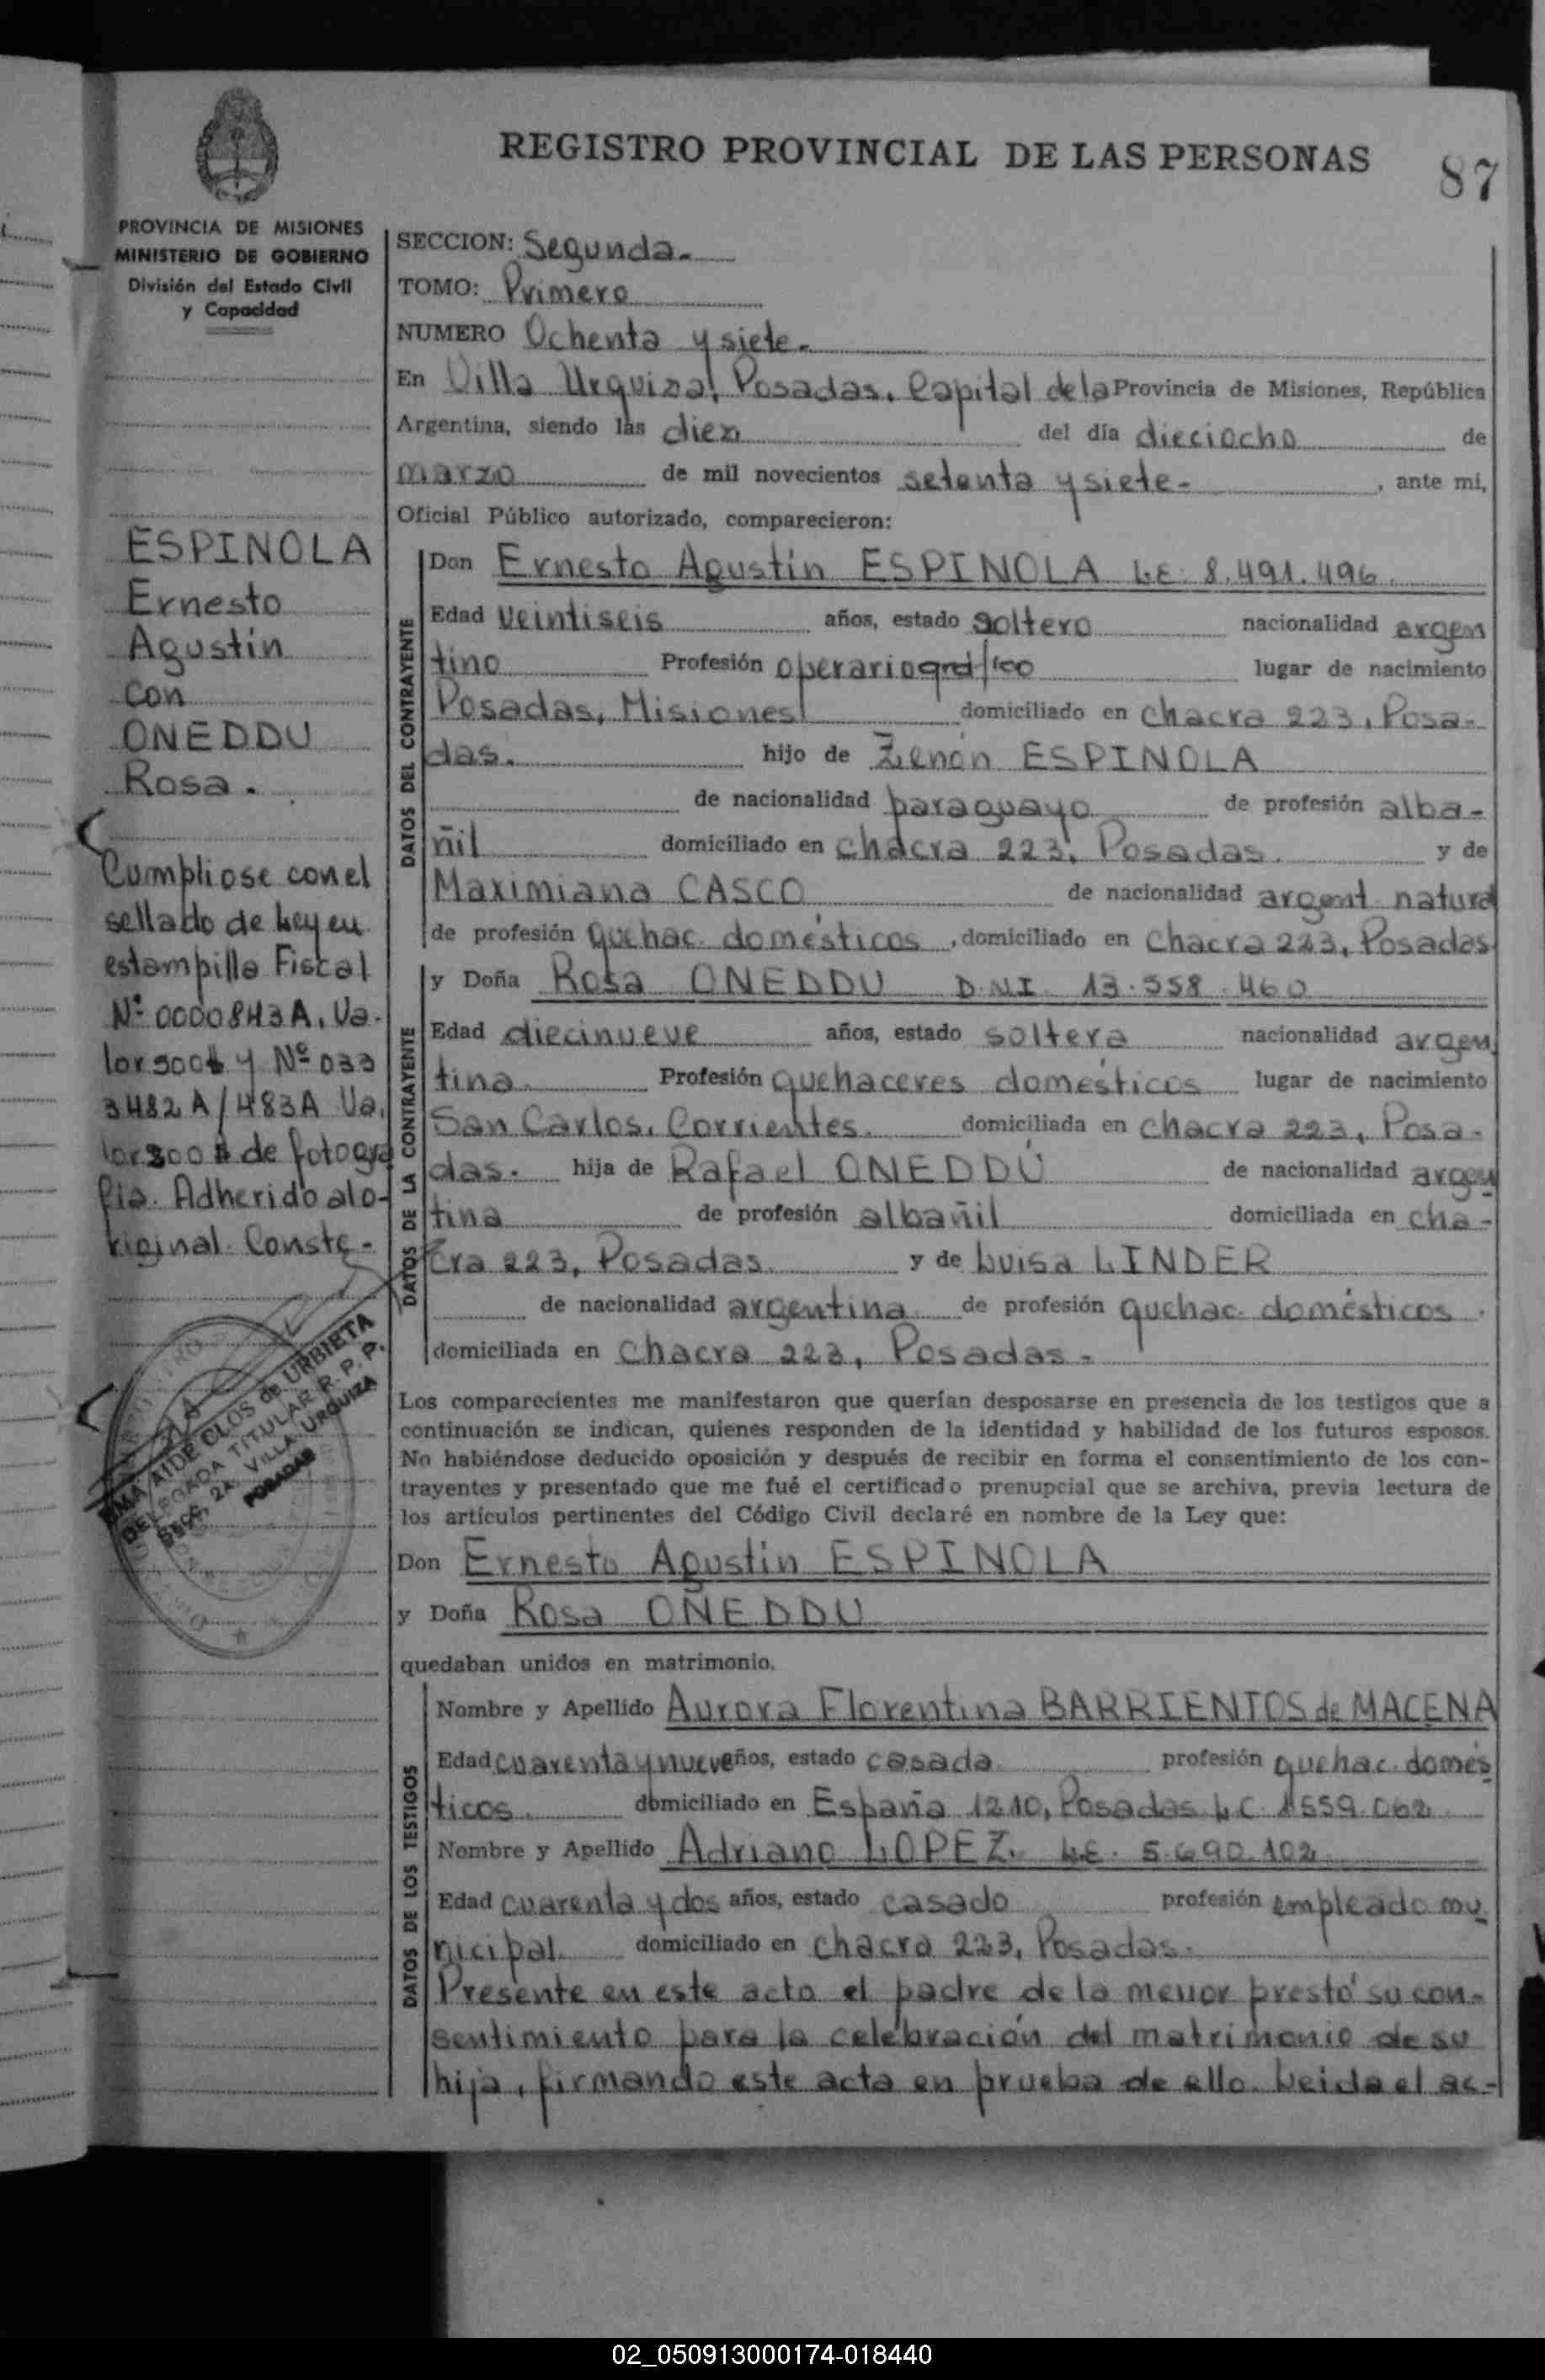 REGISTRO PROVINCIAL DE LAS PERSONAS
87
PROVINCIA DE MISIONES
MINISTERIO DE GOBIERNO
División del Estado Civil
y Capacidad
ESPINOLA
Ernesto
Agustin
con
ONEDDU
Rosa.
Cumpliose con el
sellado de Ley en
estampilla Fiscal
Nº 0000843A, Va-
lor 500$ y Nº 033
3482A/483A Va,
lor 300$ de fotogra
fia. Adherido al o-
riginal. Conste-
AIDE CLOS de URBIETA
DELEGADA TITULAR R. P. P.
SECC. 2A. VILLA URQUIZA
POSADAS
SECCION: Segunda.
TOMO: Primero
NUMERO Ochenta y siete.
En Villa Urquiza, Posadas, Capital de la Provincia de Misiones, República
Argentina, siendo las diez del día dieciocho de
marzo de mil novecientos setenta y siete- , ante mi,
Oficial Público autorizado, comparecieron:
DATOS DEL CONTRAYENTE
Don Ernesto Agustin ESPINOLA L.E. 8.491.496
Edad veintiseis años, estado soltero nacionalidad argen
tino Profesión operario gráfico lugar de nacimiento
Posadas, Misiones domiciliado en chacra 223, Posa-
das. hijo de Zenón ESPINOLA
de nacionalidad paraguayo de profesión alba-
ñil domiciliado en chacra 223, Posadas. y de
Maximiana CASCO de nacionalidad argent. natura
de profesión quehac. domésticos , domiciliado en chacra 223, Posadas
DATOS DE LA CONTRAYENTE
y Doña Rosa ONEDDU D.N.I. 13.558.460
Edad diecinueve años, estado soltera nacionalidad argen
tina. Profesión quehaceres domésticos lugar de nacimiento
San Carlos, Corrientes. domiciliada en chacra 223, Posa-
das. hija de Rafael ONEDDU de nacionalidad argen
tina de profesión albañil domiciliada en cha-
cra 223, Posadas. y de Luisa LINDER
de nacionalidad argentina de profesión quehac. domésticos.
domiciliada en chacra 223, Posadas-
Los comparecientes me manifestaron que querían desposarse en presencia de los testigos que a
continuación se indican, quienes responden de la identidad y habilidad de los futuros esposos.
No habiéndose deducido oposición y después de recibir en forma el consentimiento de los con-
trayentes y presentado que me fué el certificado prenupcial que se archiva, previa lectura de
los artículos pertinentes del Código Civil declaré en nombre de la Ley que:
Don Ernesto Agustin ESPINOLA
y Doña Rosa ONEDDU
quedaban unidos en matrimonio.
DATOS DE LOS TESTIGOS
Nombre y Apellido Aurora Florentina BARRIENTOS de MACENA
Edad cuarenta y nueve años, estado casada. profesión quehac. domés
ticos. domiciliado en España 1210, Posadas L.C. 1559.062
Nombre y Apellido Adriano LOPEZ. L.E. 5.690.102
Edad cuarenta y dos años, estado casado profesión empleado mu
nicipal. domiciliado en chacra 223, Posadas.
Presente en este acto el padre de la menor prestó su con-
sentimiento para la celebración del matrimonio de su
hija, firmando este acta en prueba de ello. Leida el ac-
02_050913000174-018440